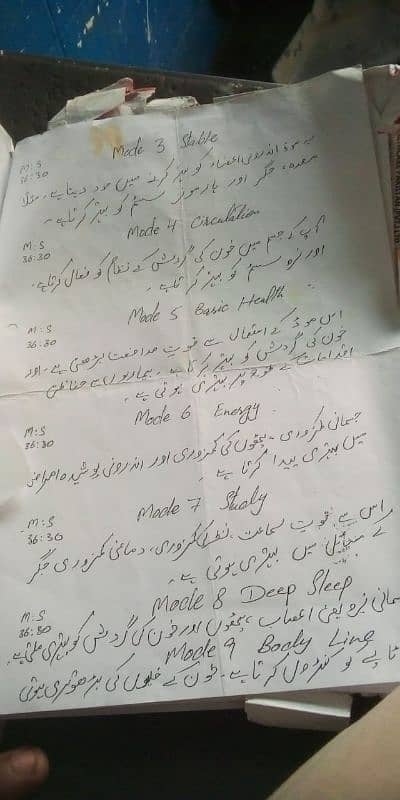 Mode 3 Stable
M:S
36:30
یہ موڈ اندرونی اعضاء کو بہتر کرنے میں مدد دیتا ہے۔ مثلاً
معدہ، جگر اور ہارمونز سسٹم کو بہتر کرتا ہے۔
Mode 4 Circulation
M:S
36:30
آپ کے جسم میں خون کی گردش کے نظام کو فعال کرتا ہے۔
اور سسٹم کو بہتر کرتا ہے۔
Mode 5 Basic Health
M:S
36:30
اس موڈ کے استعمال سے قوت مدافعت بڑھتی ہے۔ اور
خون کی گردش کو بہتر کرتا ہے۔ بیماریوں سے حفاظتی
اقدامات کے طور پر بہتری ہوتی ہے۔
Mode 6 Energy
M:S
36:30
جسمانی کمزوری۔ پٹھوں کی کمزوری اور اندرونی پوشیدہ امراض
میں بہتری پیدا کرتا ہے۔
Mode 7 Study
M:S
36:30
اس سے قوت سماعت، نظر کی کمزوری، دماغی کمزوری جگر
کے میں بہتری ہوتی ہے۔
Mode 8 Deep Sleep
M:S
36:30
اعصاب، پٹھوں اور خون کی گردش کو بہتری ملتی ہے۔
Mode 9 Body Line
کو کنٹرول کرتا ہے۔ خون کے خلیوں کی بڑھوتری ہوتی